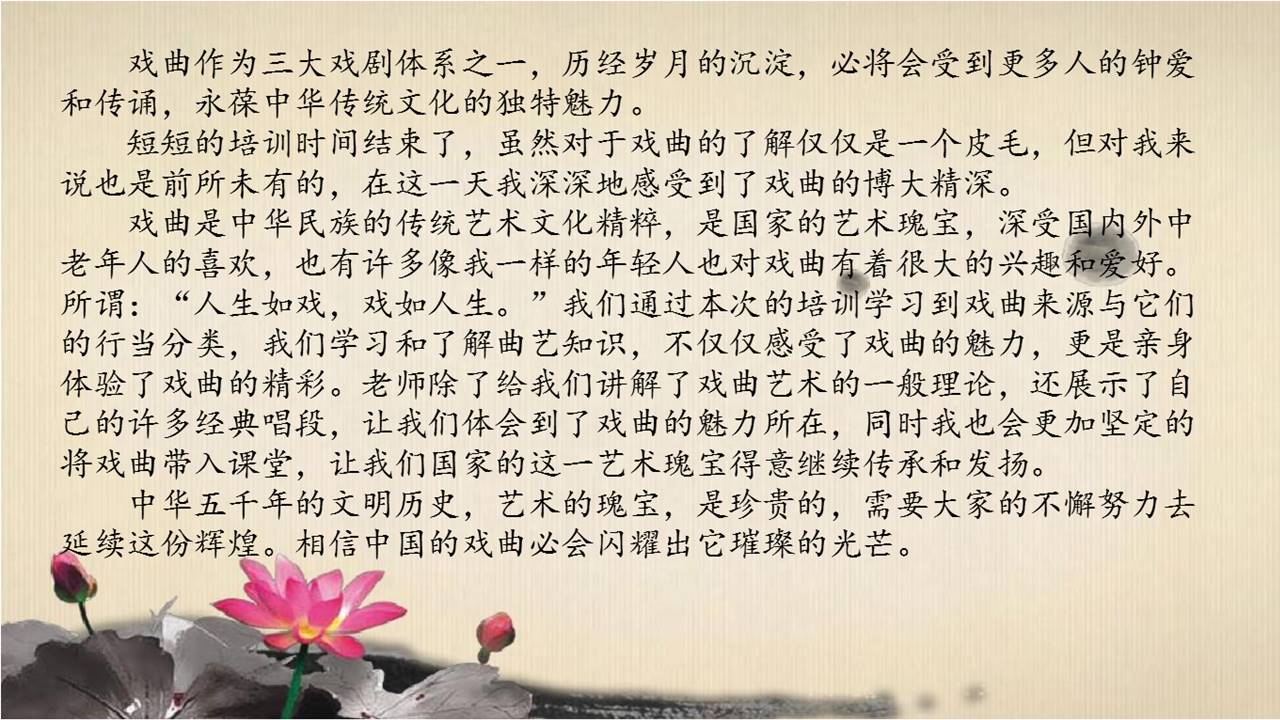 戏曲作为三大戏剧体系之一，历经岁月的沉淀，必将会受到更多人的钟爱
和传诵，永葆中华传统文化的独特魅力。
短短的培训时间结束了，虽然对于戏曲的了解仅仅是一个皮毛，但对我来
说也是前所未有的，在这一天我深深地感受到了戏曲的博大精深。
戏曲是中华民族的传统艺术文化精粹，是国家的艺术瑰宝，深受国内外中
老年人的喜欢，也有许多像我一样的年轻人也对戏曲有着很大的兴趣和爱好。
所谓：“人生如戏，戏如人生。”我们通过本次的培训学习到戏曲来源与它们
的行当分类，我们学习和了解曲艺知识，不仅仅感受了戏曲的魅力，更是亲身
体验了戏曲的精彩。老师除了给我们讲解了戏曲艺术的一般理论，还展示了自
己的许多经典唱段，让我们体会到了戏曲的魅力所在，同时我也会更加坚定的
将戏曲带入课堂，让我们国家的这一艺术瑰宝得意继续传承和发扬。
中华五千年的文明历史，艺术的瑰宝，是珍贵的，需要大家的不懈努力去
延续这份辉煌。相信中国的戏曲必会闪耀出它璀璨的光芒。